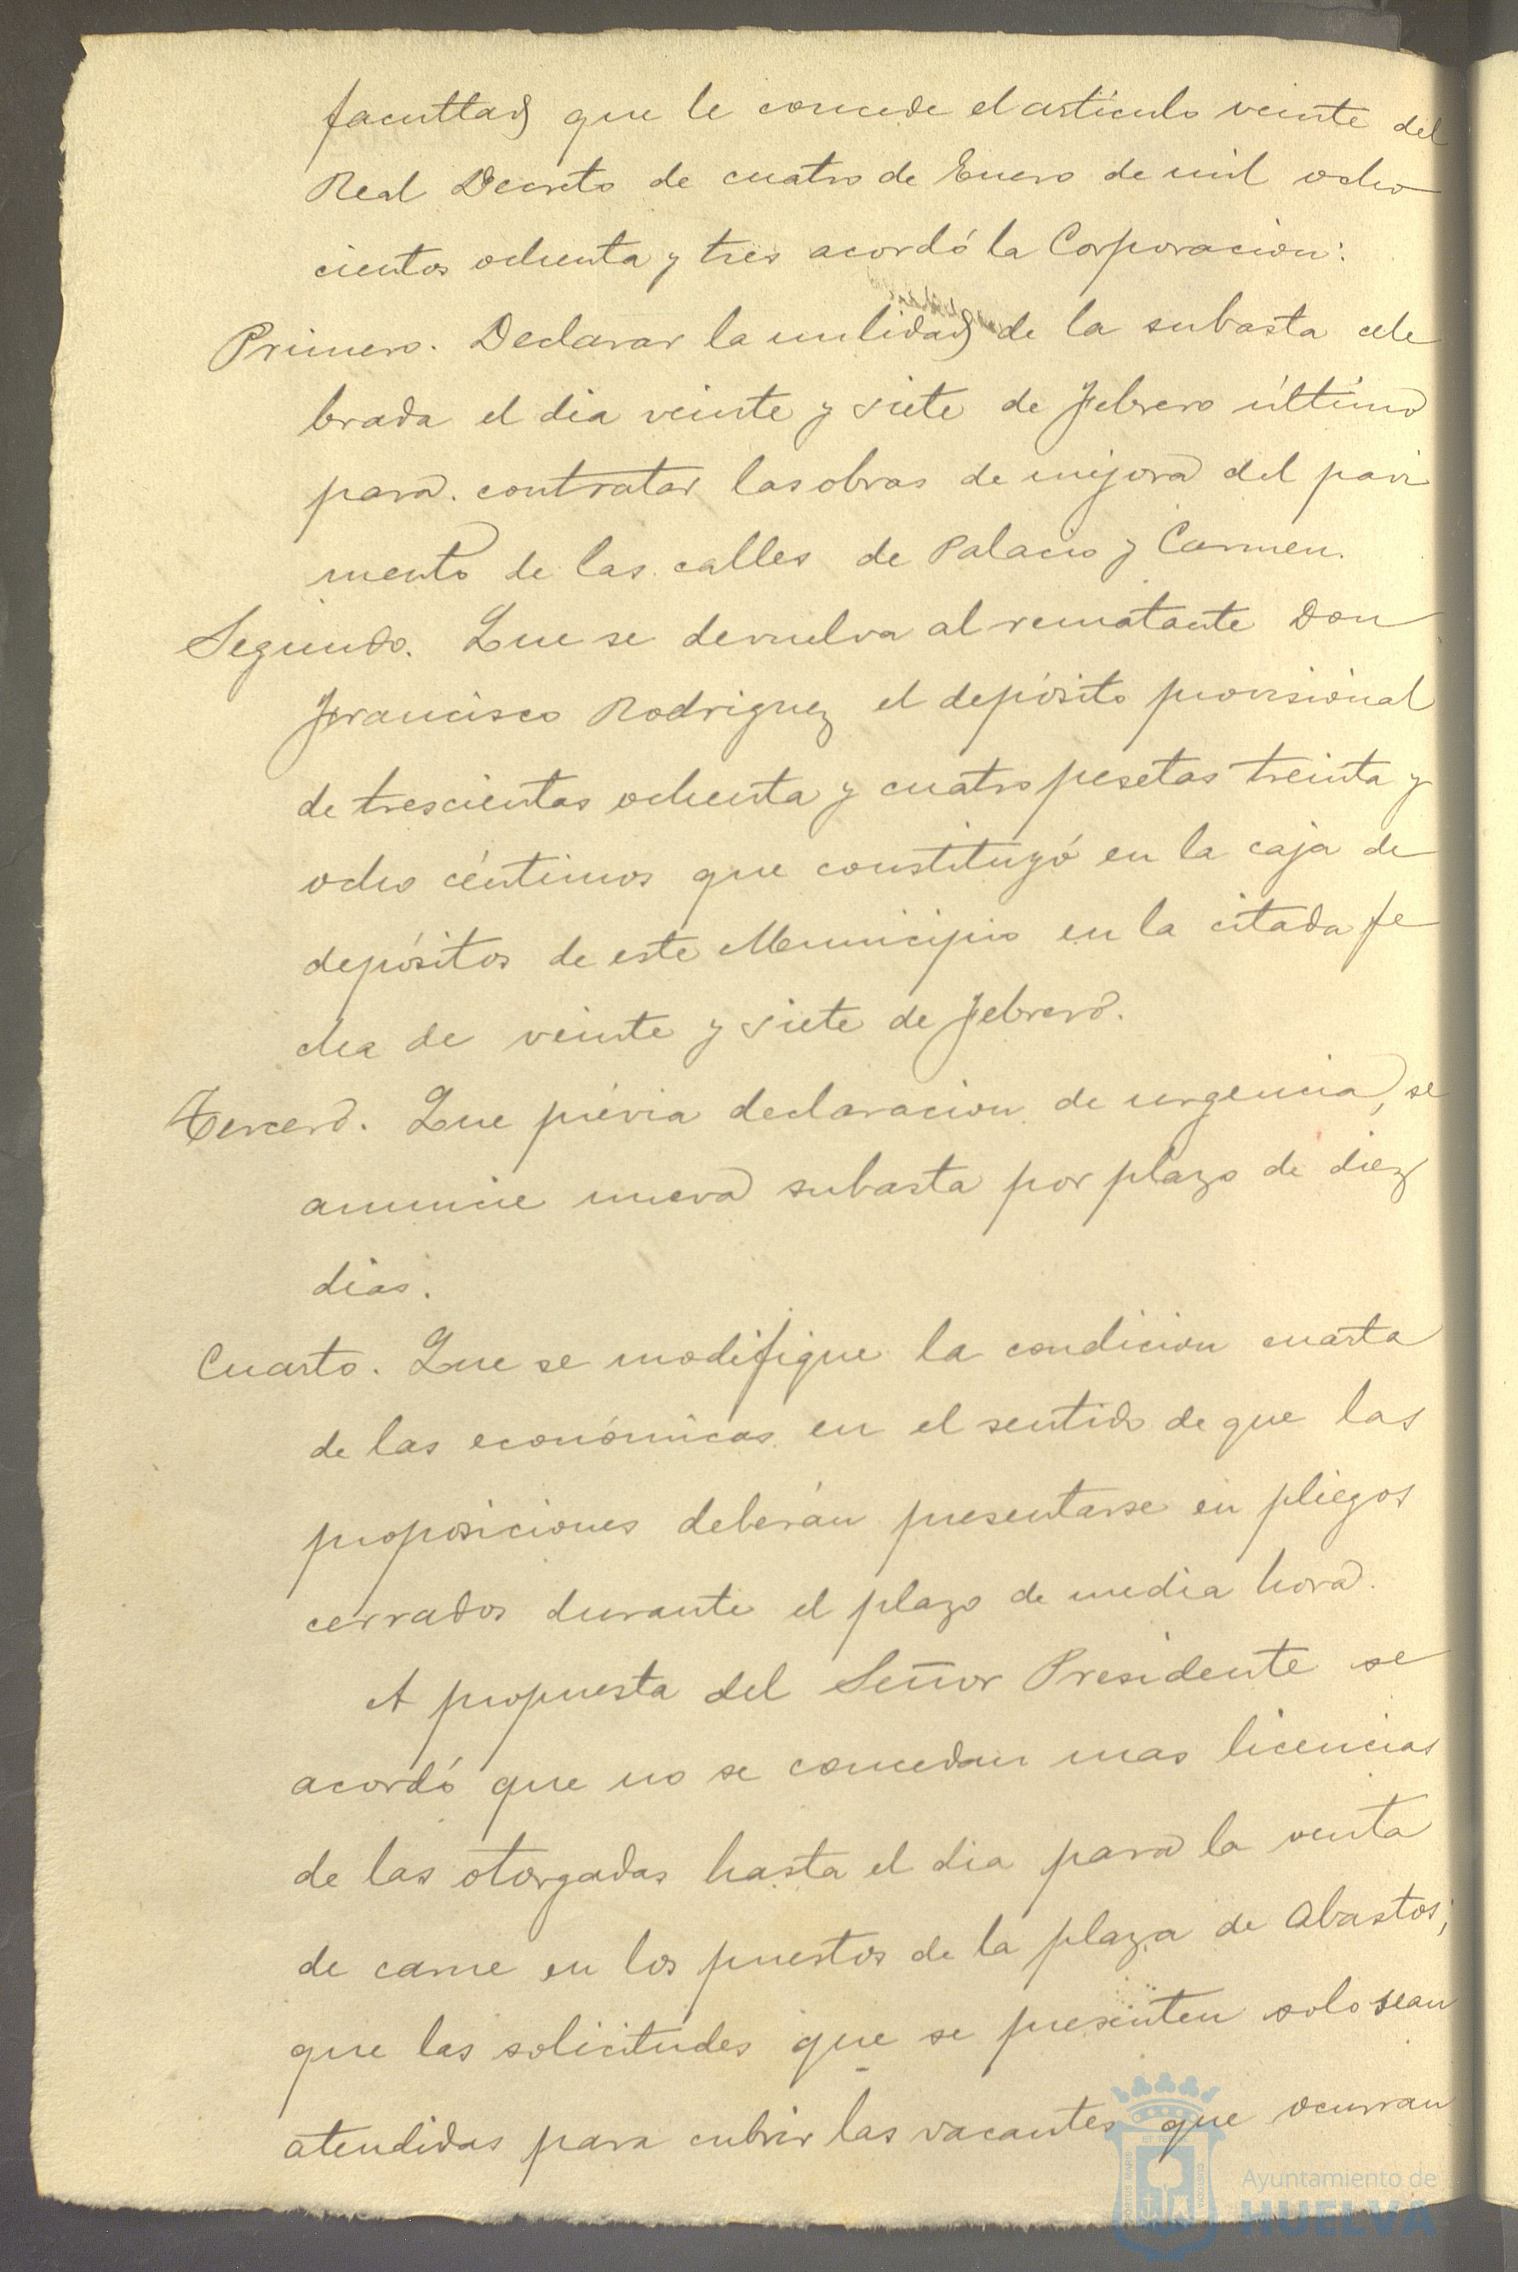 facultad que le concede el artículo veinte del
Real Decreto de cuatro de Enero de mil ocho
cientos ochenta y tres acordó la Corporacion:
Primero. Declarar la nulidad de la subasta cele
brada el dia veinte y siete de Febrero último
para contratar las obras de mejora del pavi
mento de las calles de Palacio y Carmen.
Segundo. Que se devuelva al rematante Don
Francisco Rodriguez el depósito provisional
de trescientas ochenta y cuatro pesetas treinta y
ocho céntimos que constituyó en la caja de
depósitos de este Municipio en la citada fe
cha de veinte y siete de Febrero.
Tercero. Que prévia declaracion de urgencia, se
anuncie nueva subasta por plazo de diez
dias.
Cuarto. Que se modifique la condicion cuarta
de las económicas en el sentido de que las
proposiciones deberán presentarse en pliegos
cerrados durante el plazo de media hora.
A propuesta del Señor Presidente se
acordó que no se concedan mas licencias
de las otorgadas hasta el dia para la venta
de carne en los puestos de la plaza de Abastos;
que las solicitudes que se presenten solo sean
atendidas para cubrir las vacantes que ocurran
Ayuntamiento de
HUELVA